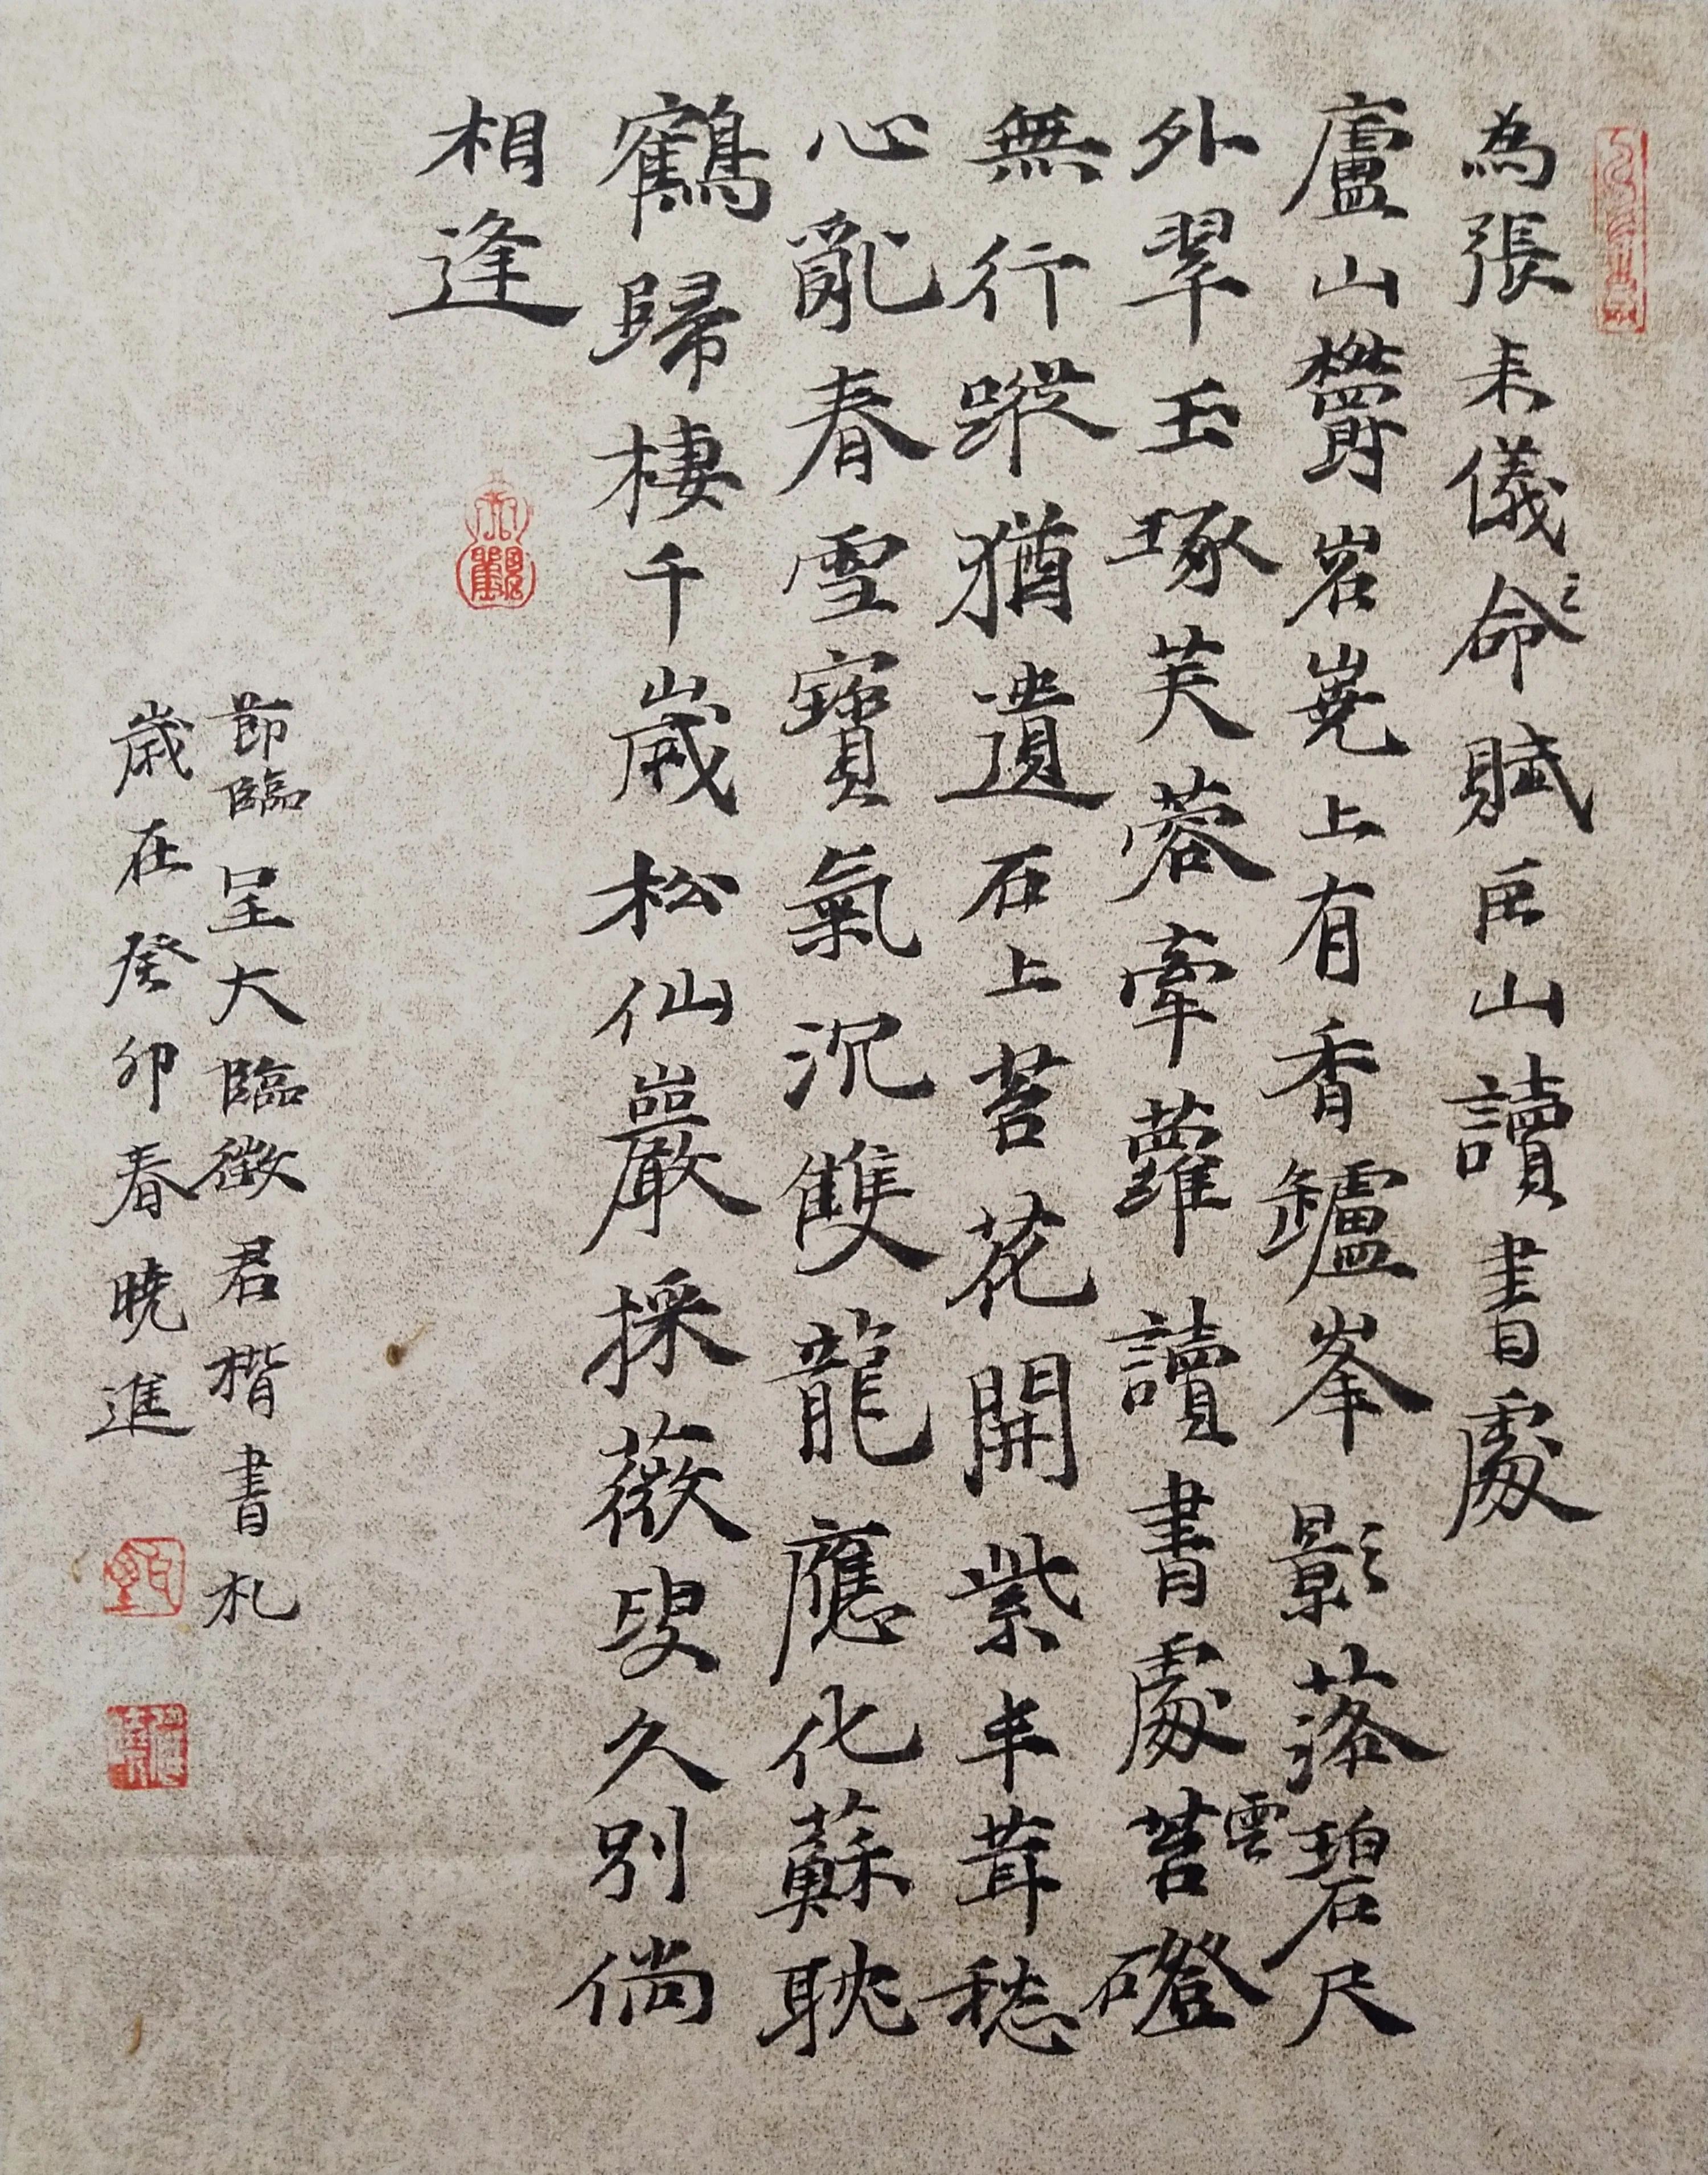 為張来儀之命賦匡山讀書處
廬山欝岧嶤上有香罏峯影落碧雲
外翠玉琢芙蓉牽蘿讀書處苔磴
無行蹤猶遺石上苔花開紫丰茸
心亂春雪寶氣沉雙龍應化蘇耽
鶴歸棲千歳松仙巖採薇叟久別倘
相逢
節臨呈大臨徵君楷書札
歳在癸卯春曉進